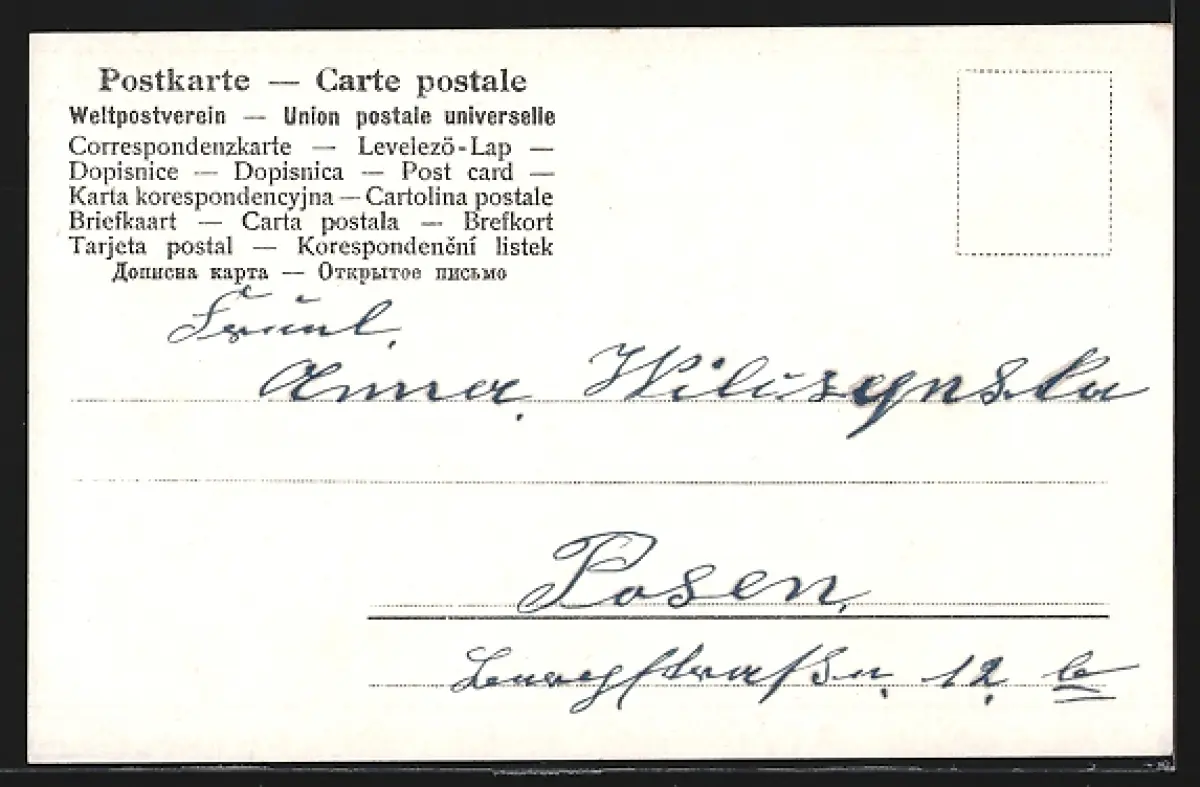 Postkarte — Carte postale
Weltpostverein — Union postale universelle
Correspondenzkarte — Levelező-Lap —
Dopisnice — Dopisnica — Post card —
Karta korespondencyjna — Cartolina postale
Briefkaart — Carta postala — Brefkort
Tarjeta postal — Korespondenční listek
Дописна карта — Открытое письмо
Fräul.
Anna
Posen,
12 b